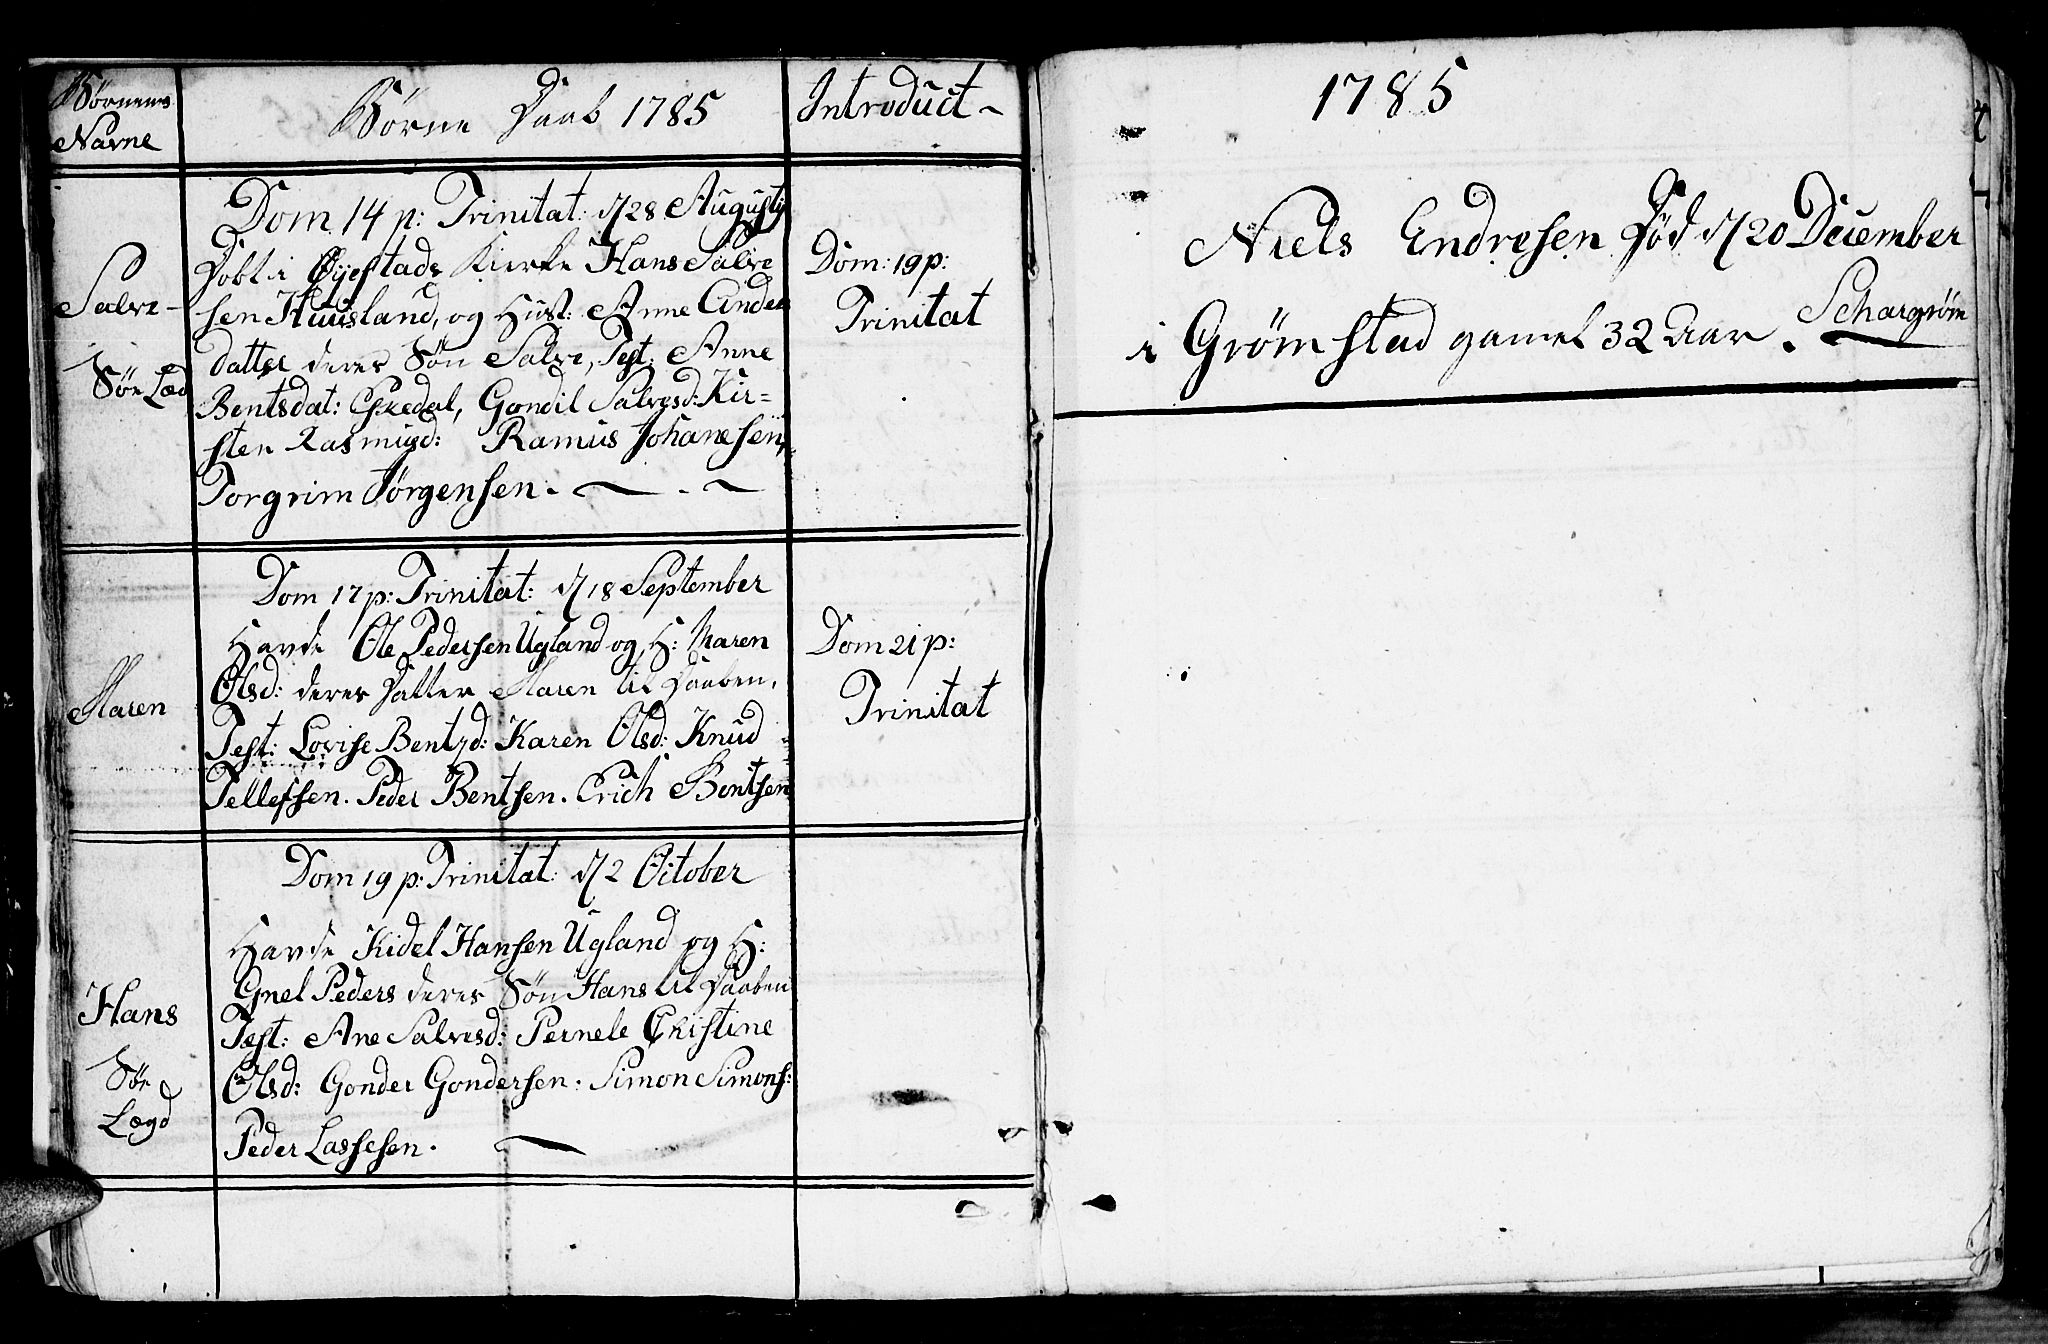 Børnens
Navne
Børne Daab 1785
Introduct
Dom 14 p: Trinitat: d/28 Augusti
Salve
Sør Læd
Døbt i Øyestads Kierke Hans Salve
sen Huusland, og Hust: Anne Anders
datter deres Søn Salve, Test: Anne
Bentsdat: Eskedal, Gondil Salvesd: Kir=
sten Rasmusd: Ramus Johanesen,
Torgrim Jørgensen.
Dom: 19 p:
Trinitat
Dom 17 p: Trinitat: d/18 September
Maren
Havde Ole Pedersen Ugland og H: Maren
Olsd: deres Datter Maren til Daaben,
Test: Lovise Bentzd: Karen Olsd: Knud
Tellefsen. Peder Bentsen. Erich Bentsen
Dom 21 p:
Trinitat
Dom 19 p: Trinitat: d/2 October
Hans
Sør
Lægd
Havde Kidel Hansen Ugland og H:
Gnel Peders deres Søn Hans til Daaben
Test: Ane Salvesd: Pernele Christine
Olsd: Gonder Gondersen. Simon Simons:
Peder Lassesen.
1785
Niels Endresen Død d/20 December
i Grømstad gamel 32 Aar. Schargrøm